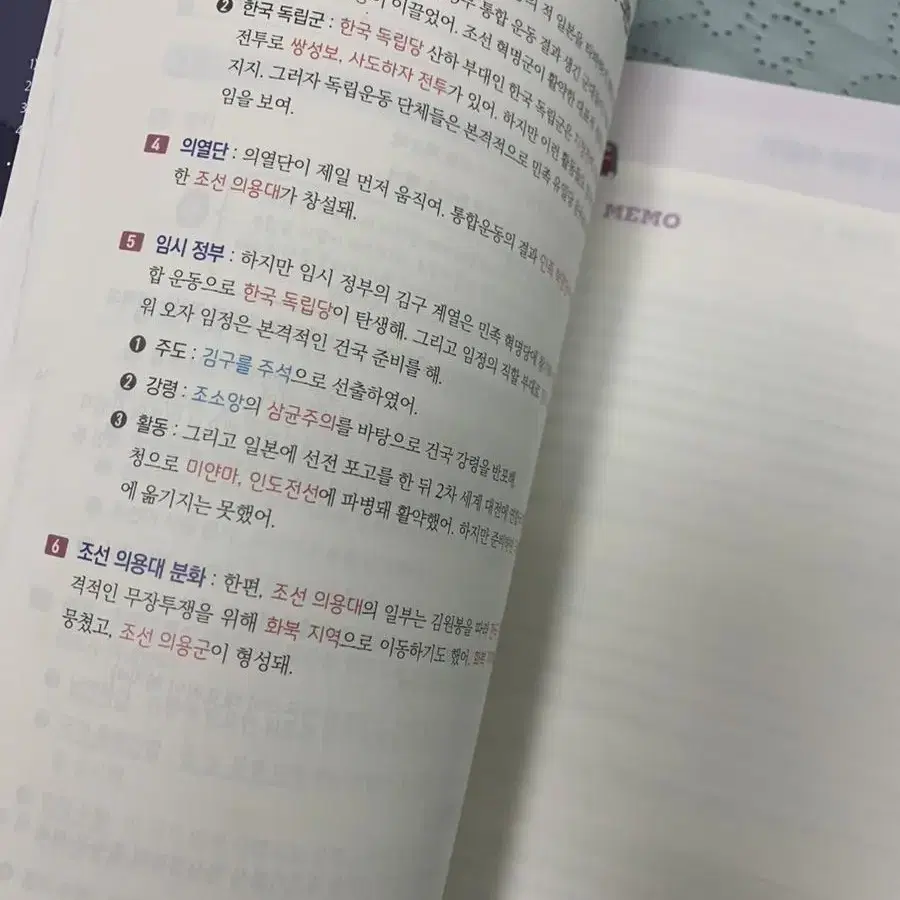 의 적 일본을
이 이끌었어. 조선 혁명군이 활약한 대표
통합 운동 결과 생긴 군대
❷ 한국 독립군 : 한국 독립당 산하 부대인 한국 독립군은
전투로 쌍성보, 사도하자 전투가 있어. 하지만 이런 활동
지지. 그러자 독립운동 단체들은 본격적으로 민족 유일당
임을 보여.
4 의열단 : 의열단이 제일 먼저 움직여. 통합운동의 결과 민족
한 조선 의용대가 창설돼.
5 임시 정부 : 하지만 임시 정부의 김구 계열은 민족 혁명당에
합 운동으로 한국 독립당이 탄생해. 그리고 임정의 직할 부대로
워 오자 임정은 본격적인 건국 준비를 해.
❶ 주도 : 김구를 주석으로 선출하였어.
❷ 강령 : 조소앙의 삼균주의를 바탕으로 건국 강령을 반포해.
❸ 활동 : 그리고 일본에 선전 포고를 한 뒤 2차 세계 대전에
청으로 미얀마, 인도전선에 파병돼 활약했어. 하지만
에 옮기지는 못했어.
6 조선 의용대 분화 : 한편, 조선 의용대의 일부는 김원봉을 따라
격적인 무장투쟁을 위해 화북 지역으로 이동하기도 했어. 화북
뭉쳤고, 조선 의용군이 형성돼.
MEMO